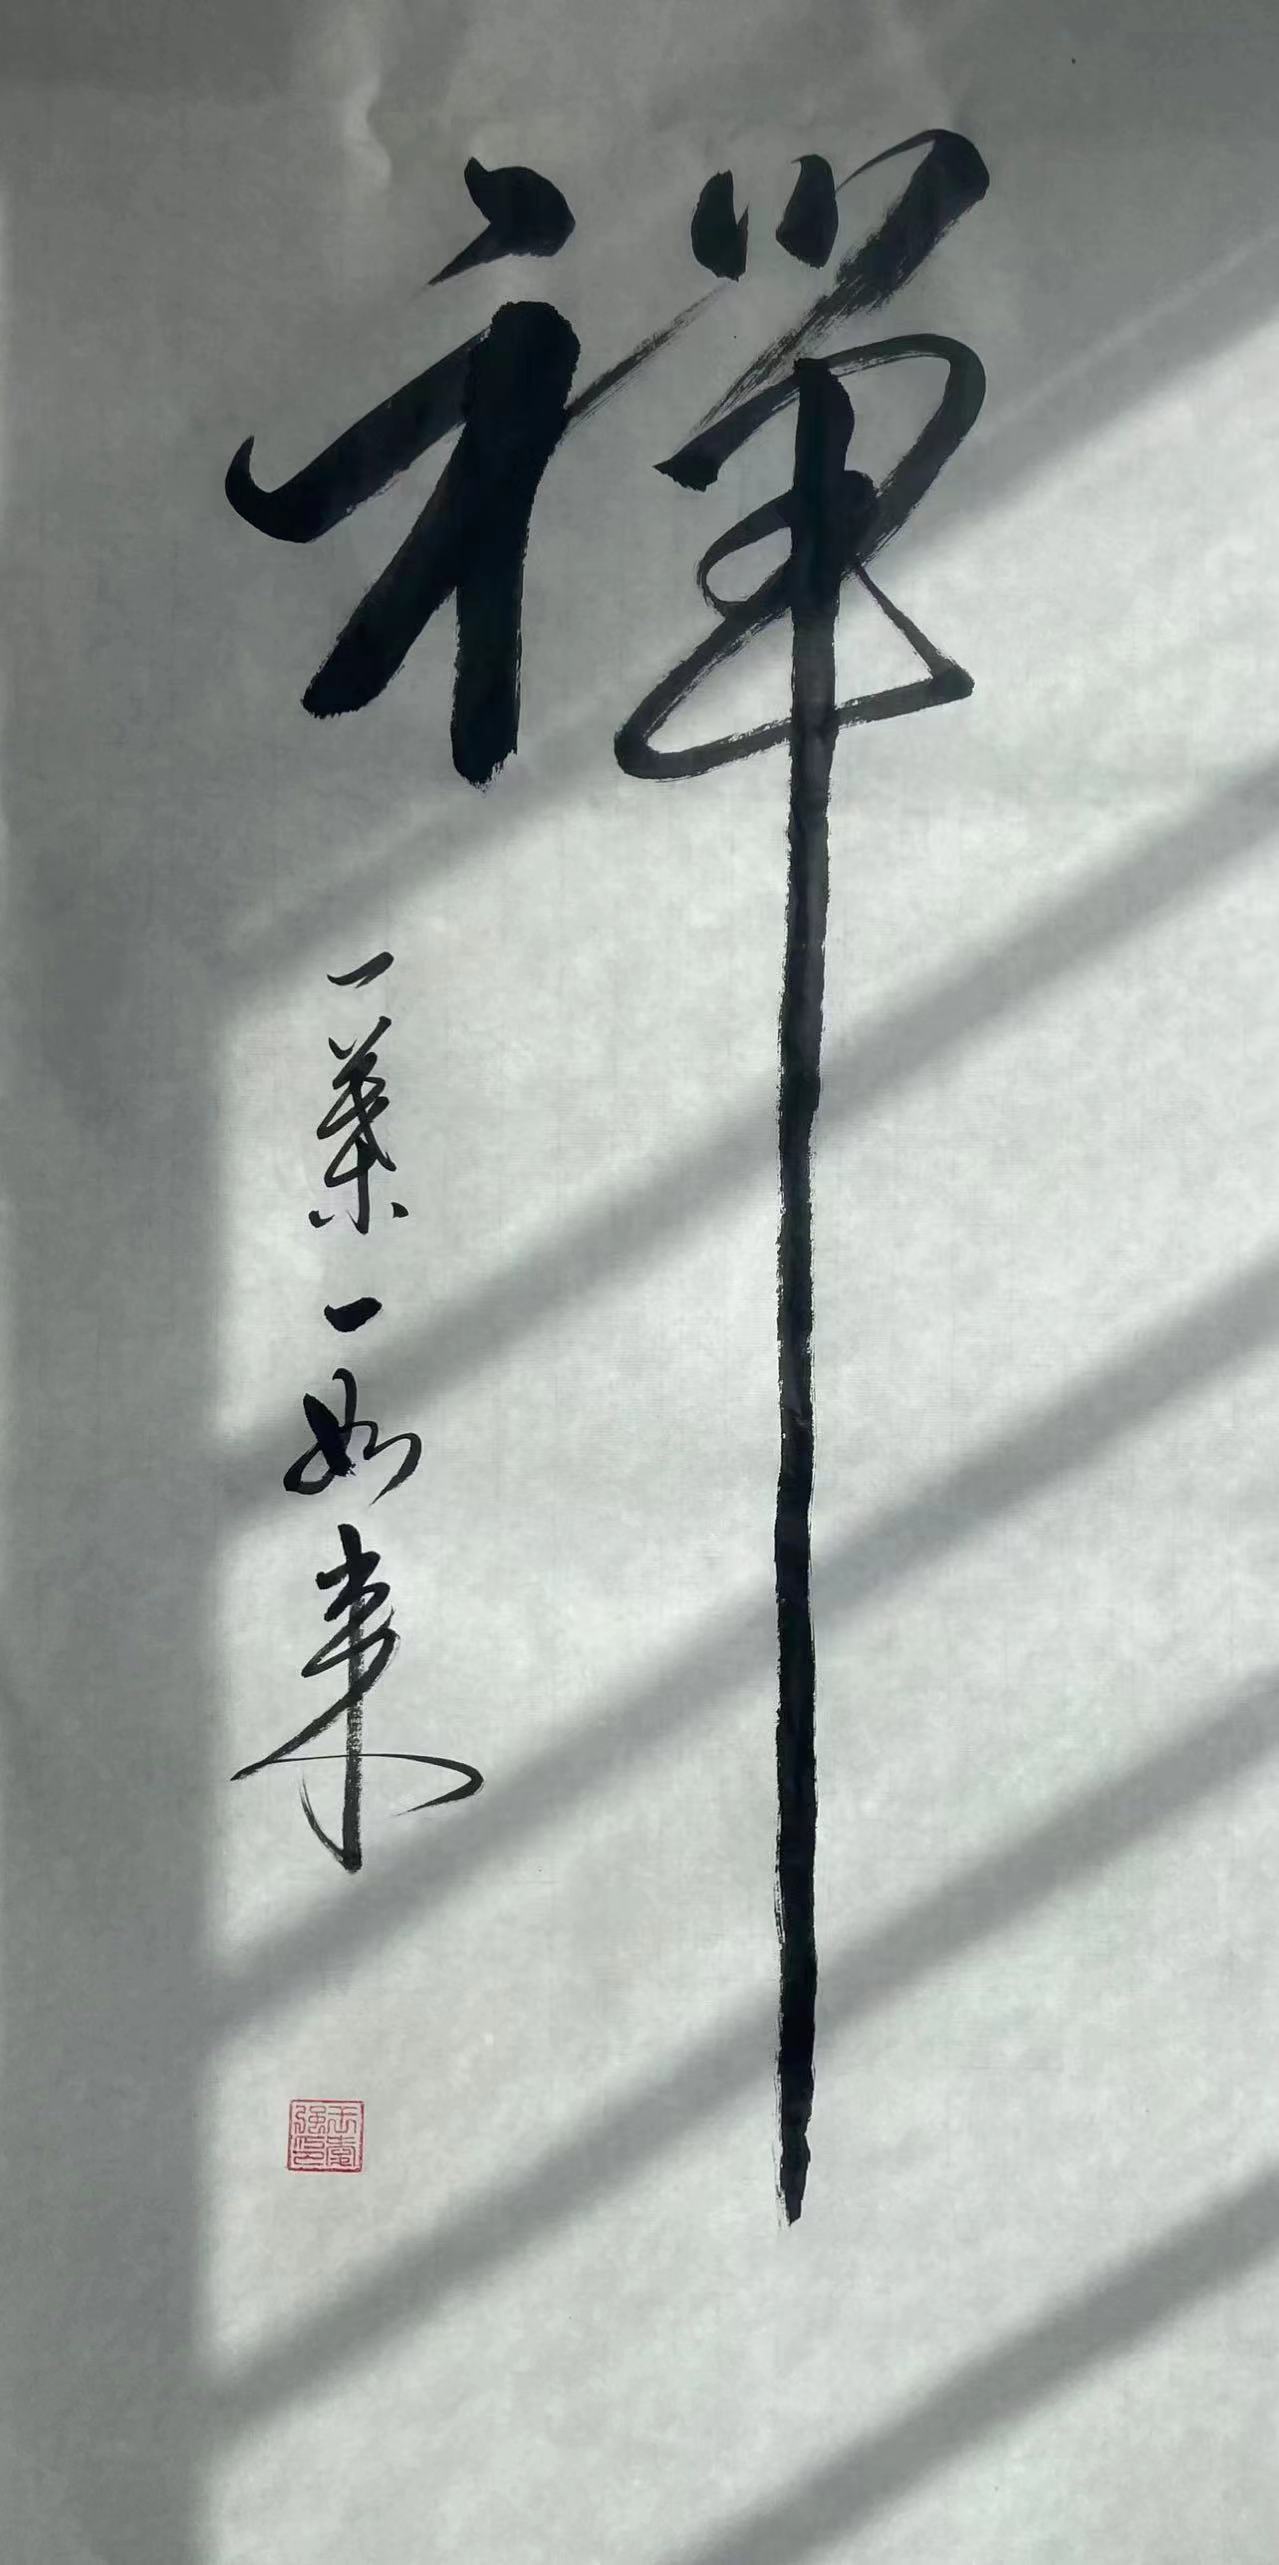 禅
一葉一如来